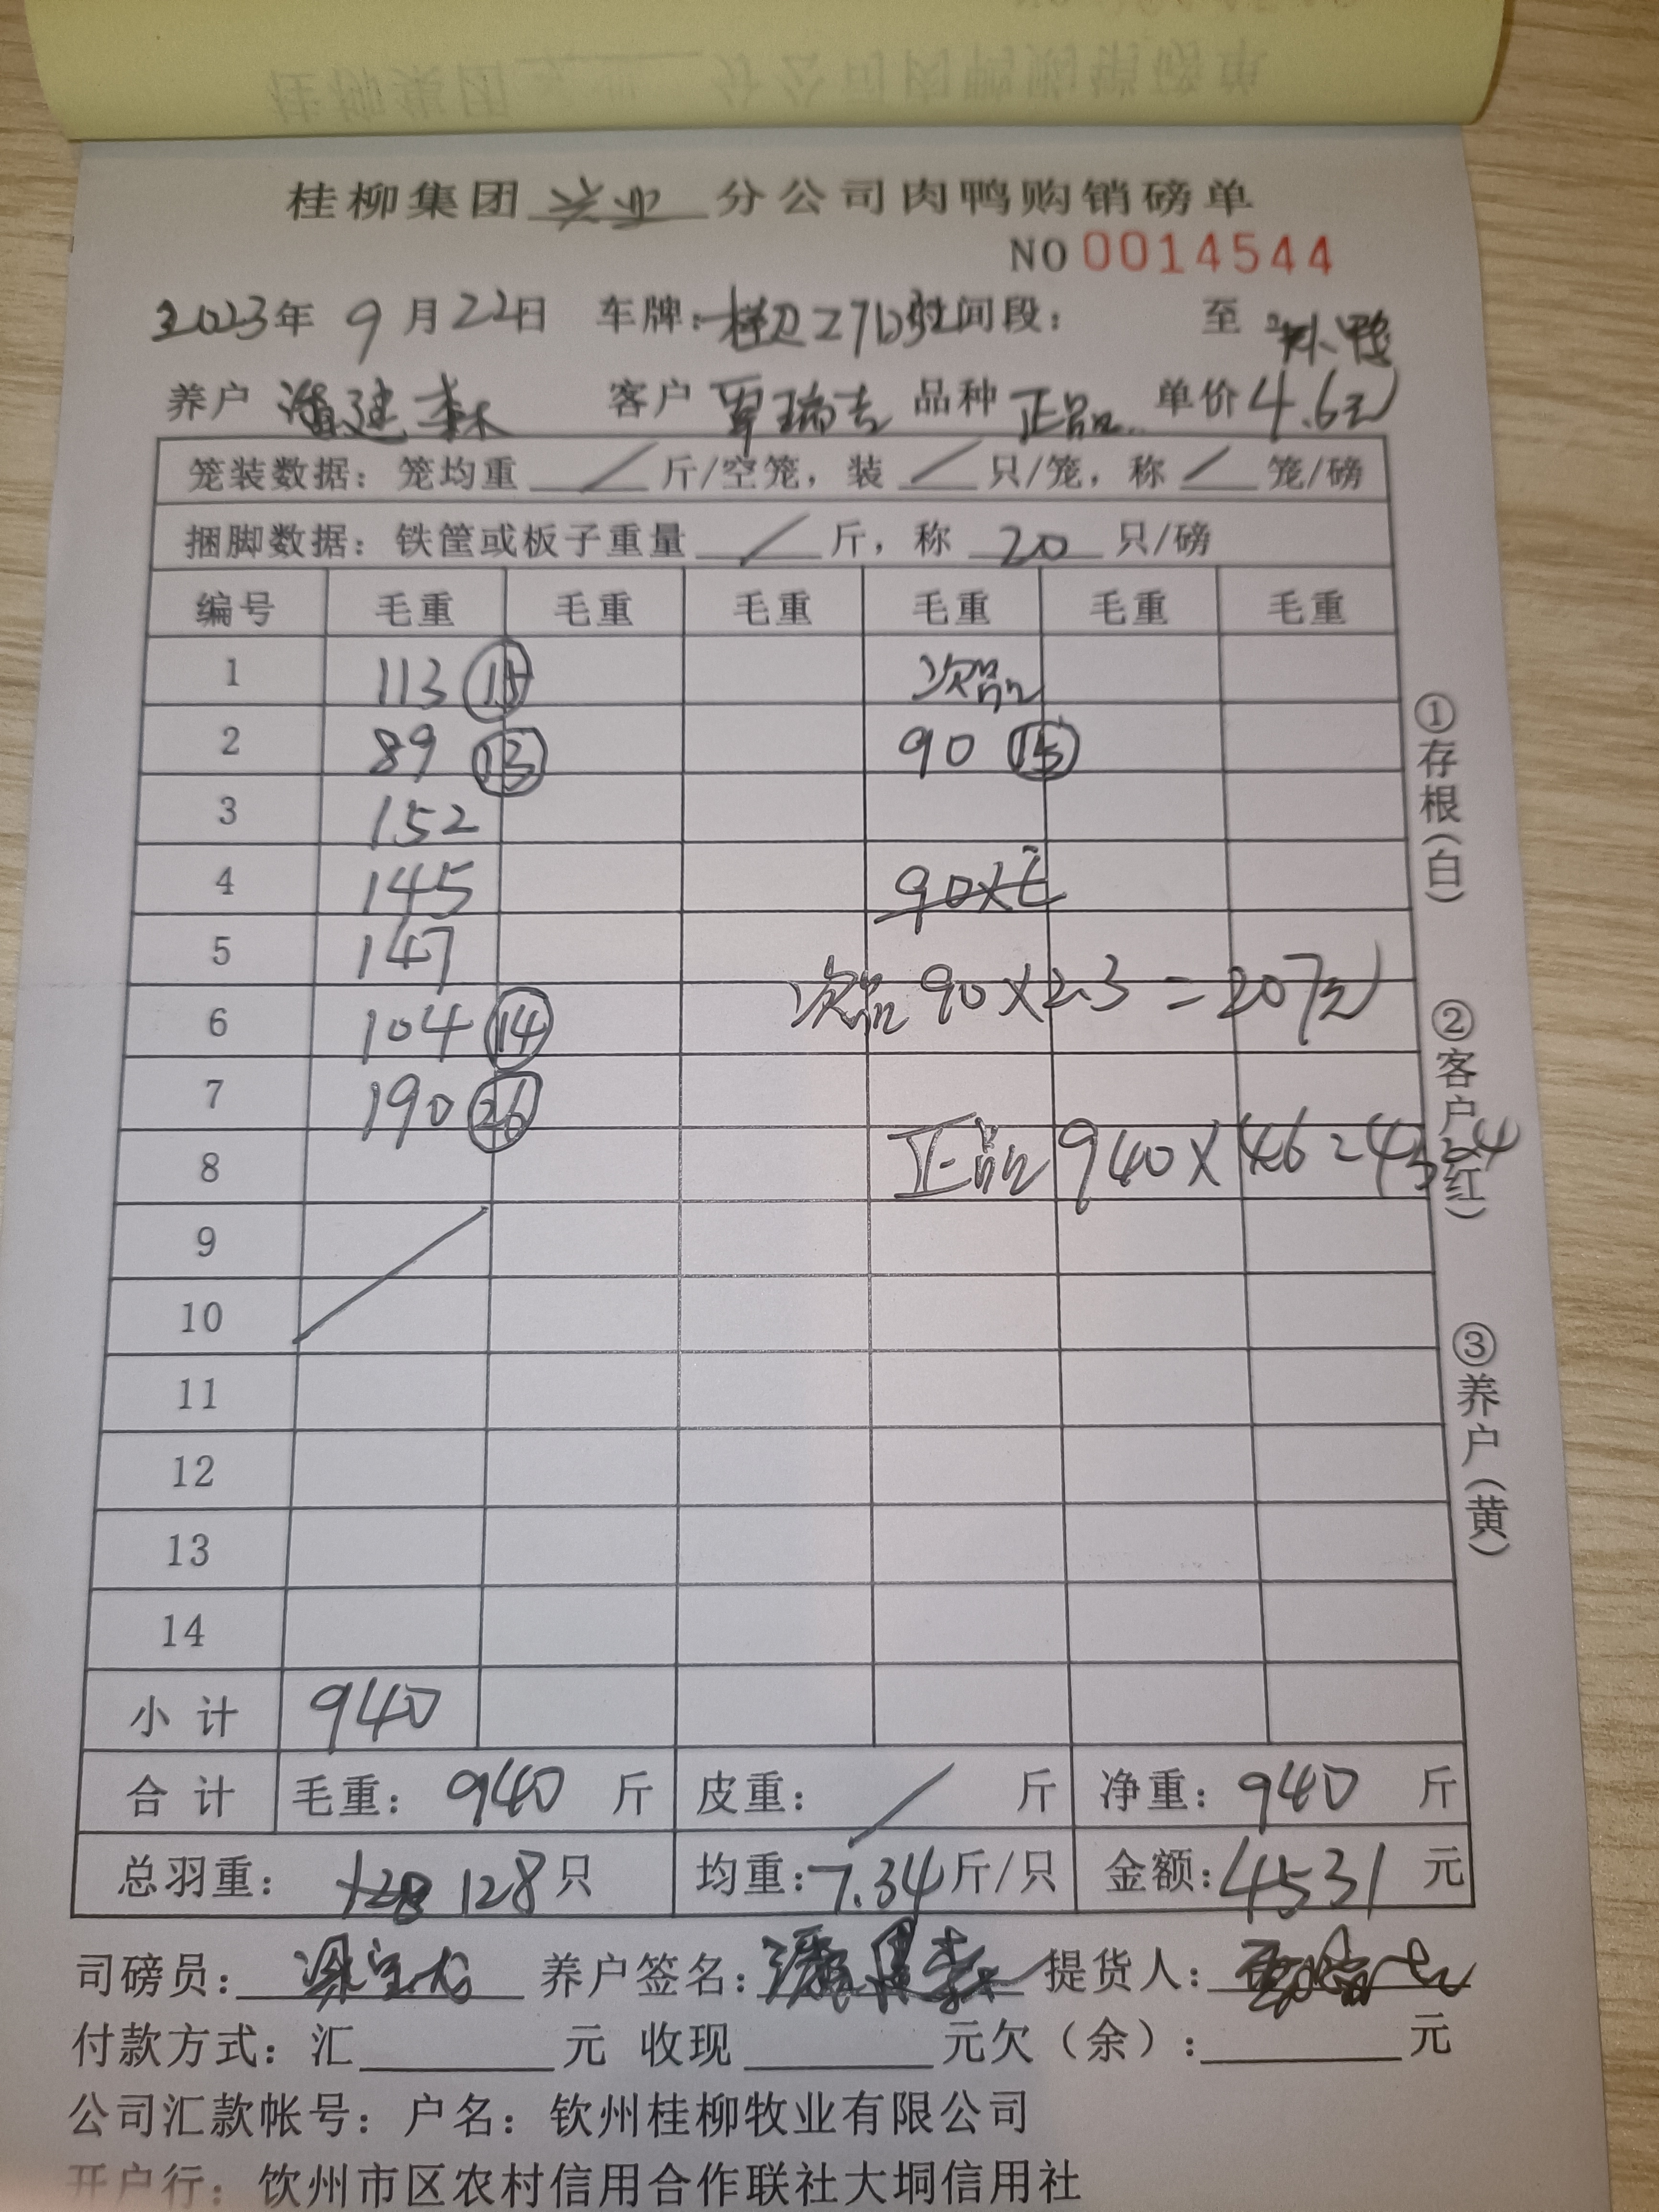 桂柳集团 兴业 分公司肉鸭购销磅单
NO 0014544
2023年 9月22日 车牌: 时间段: 至
养户 潘建森 客户 覃瑞吉 品种 正品 单价 4.6元
笼装数据: 笼均重 / 斤/空笼, 装 / 只/笼, 称 / 笼/磅
捆脚数据: 铁筐或板子重量 / 斤, 称 20 只/磅
编号 毛重 毛重 毛重 毛重 毛重 毛重
1 113 15 次品
2 89 13 90 15
3 152
4 145
5 147
次品 90×2.3=207元
6 104 14
7 190 26
8 正品 940×4.6=4324
9
10
11
12
13
14
小计 940
合计 毛重: 940 斤 皮重: / 斤 净重: 940 斤
总羽重: 128只 均重: 7.34斤/只 金额: 4531 元
司磅员: 养户签名: 潘建森 提货人:
付款方式: 汇 元 收现 元欠(余): 元
公司汇款帐号: 户名: 钦州桂柳牧业有限公司
开户行: 钦州市区农村信用合作联社大垌信用社
①存根(白)
②客户(红)
③养户(黄)